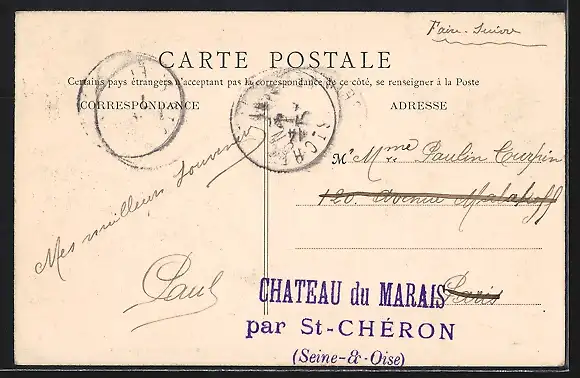 Faire-Suivre
CARTE POSTALE
Certains pays étrangers n'acceptant pas la correspondance de ce côté, se renseigner à la Poste
CORRESPONDANCE
ADRESSE
ST CHE
Mes meilleurs souvenirs
Paul
M Mme Paulin Turpin
120. Avenue Malakoff
Paris
CHATEAU du MARAIS
par St-CHÉRON
(Seine-&-Oise)